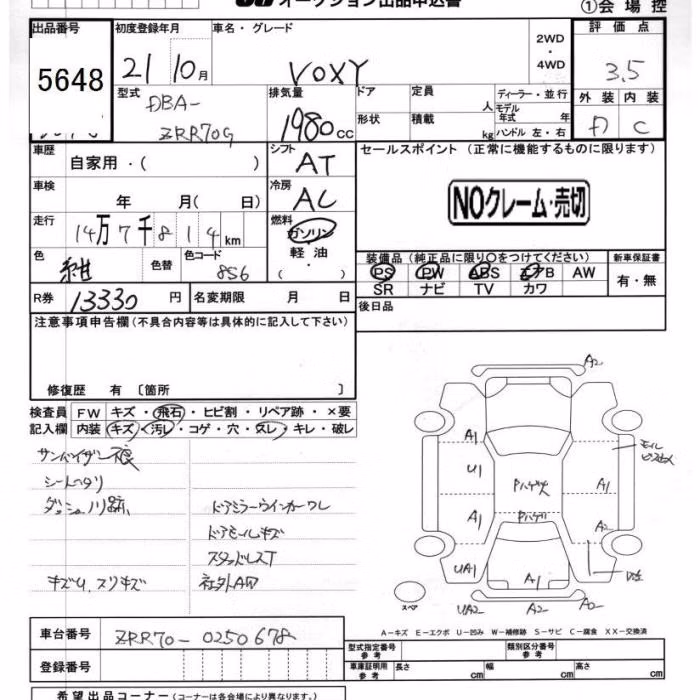 オークション出品申込書
①会場控
出品番号 初度登録年月 車名・グレード 2WD・4WD 評価点
5648 21 10月 VOXY 3.5
型式 DBA-ZRR70G 排気量 1980cc ドア 形状 定員 人 積載 kg ディーラー・並行 モデル年式 年 ハンドル 左・右 外装 内装
D C
車歴 自家用・( ) シフト AT セールスポイント (正常に機能するものに限ります)
車検 年 月( 日) 冷房 AC NOクレーム・売切
走行 14万7千814km 燃料 ガソリン 軽油
色 紺 色替 色コード 8S6 装備品 (純正品に限り○をつけてください) 新車保証書
PS PW ABS エアB AW 有・無
SR ナビ TV カワ
R券 13330円 名変期限 月 日 後日品
注意事項申告欄(不具合内容等は具体的に記入して下さい)
修復歴 有 〔箇所 〕
検査員 FW キズ・飛石・ヒビ割・リペア跡・×要
記入欄 内装 キズ・汚レ・コゲ・穴・スレ・キレ・破レ
サンバイザー痕
シートヘタリ
ダッシュノリ跡 ドアミラーウインカーワレ
ドアモールキズ
スタッドレスT
キズU、スリキズ 社外AW
A2
A1 モール
U1 Pハゲ大 A1
A1 Pハゲ A2
UA1 A1
スペア UA2 A2 A2
A-キズ E-エクボ U-凹み W-補修跡 S-サビ C-腐食 XX-交換済
車台番号 ZRR70-0250678
登録番号
型式指定番号 参考 類別区分番号 参考
車庫証明用 参考 長さ cm 幅 cm 高さ cm
希望出品コーナー(コーナーは各会場により異なります。)